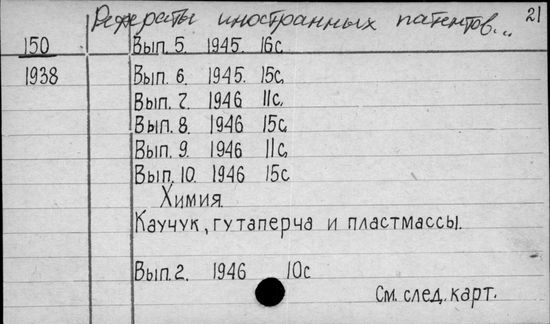 Рефераты иностранных патентов... 21
150 Вып. 5. 1945. 16с.
1938 Вып. 6. 1945. 15с.
Вып. 7. 1946 11с.
Вып. 8. 1946 15с.
Вып. 9. 1946 11с.
Вып. 10. 1946 15с
Химия.
Каучук, гутаперча и пластмассы.
Вып. 2. 1946 10с
См. след. карт.